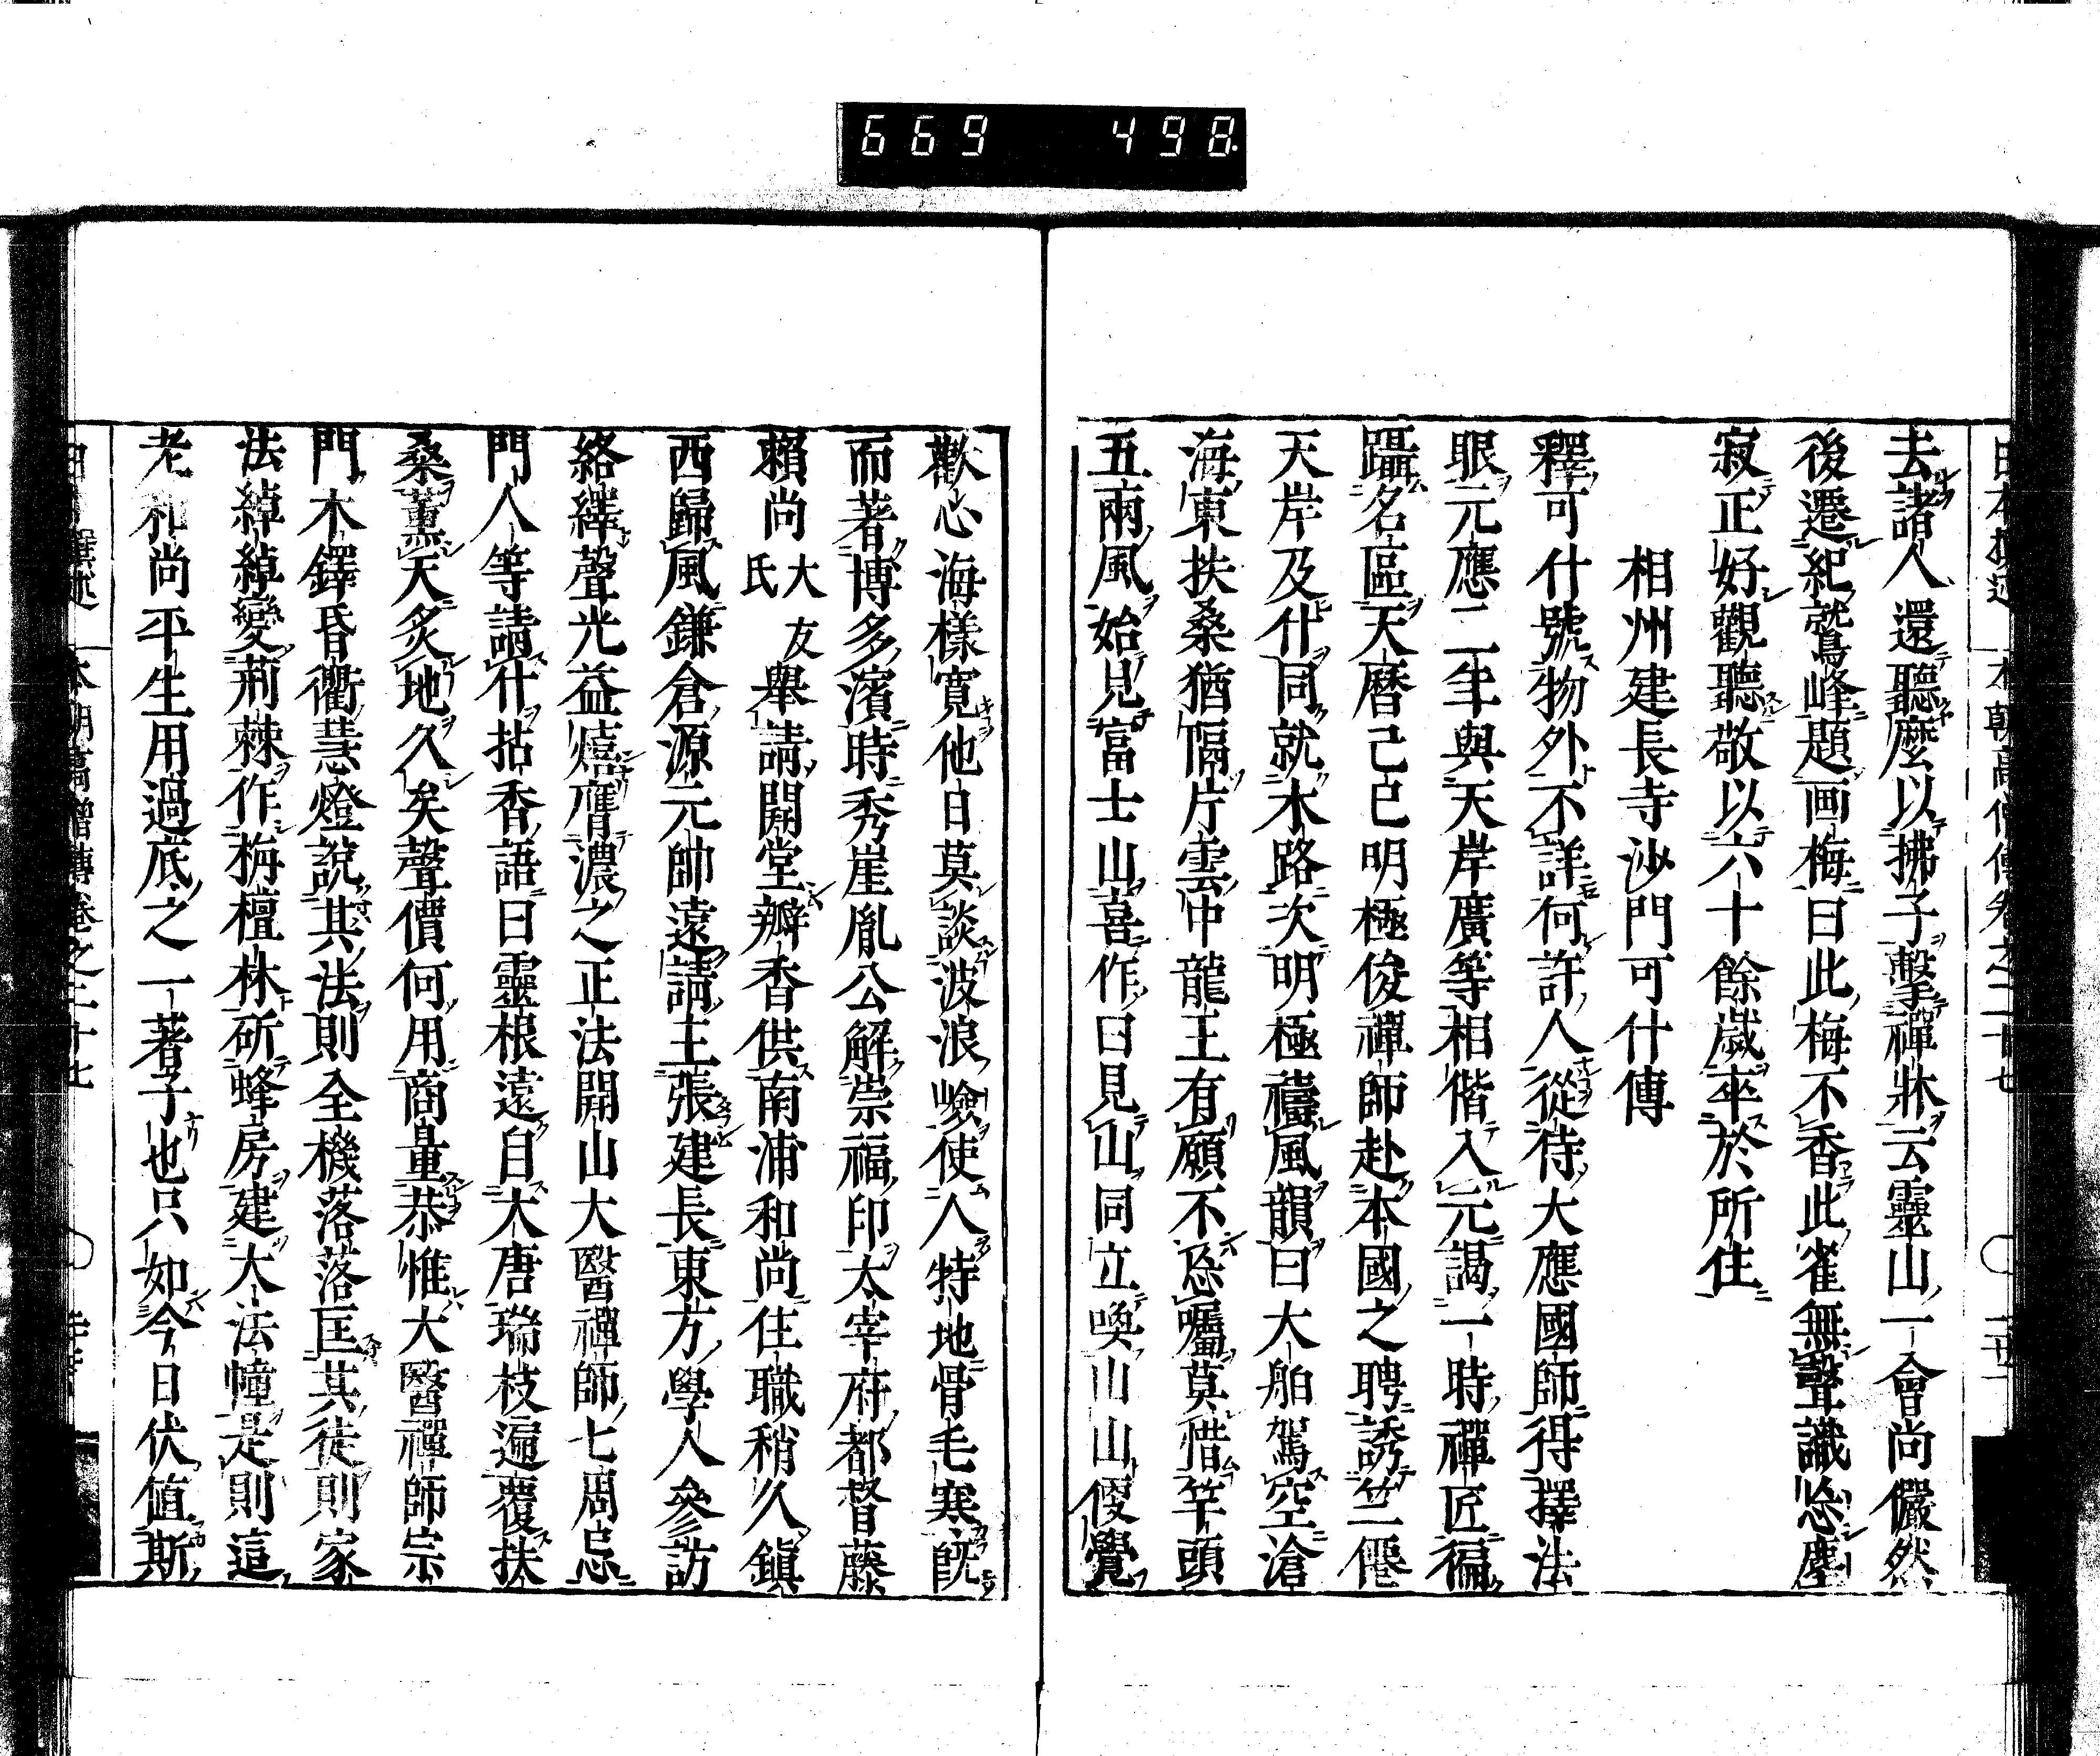 669 498
去諸人還聽麼以拂子擊禪牀云靈山一會尚儼然
後遷紀鷲峰題画梅曰此梅不香此雀無聲識忩塵
寂正好觀聽敬以六十餘歲卒於所住
相州建長寺沙門可什傳
釋可什號物外不詳何許人從侍大應國師得擇法
眼元應二年與天岸廣等相偕入元謁一時禪匠徧
躡名區天曆己巳明極俊禪師赴本國之聘誘竺僊
天岸及什同就木路次明極禱風韻曰大舶駕空滄
海東扶桑猶隔片雲中龍王有願不忩囑莫惜竿頭
五兩風始見富士山喜作曰見山同立喚山山便覺
歡心海樣寬他日莫談波浪嶮使人特地骨毛寒既
而著博多濱時秀崖胤公解崇福印太宰府都督藤
賴尚大友氏舉請開堂瓣香供南浦和尚住職稍久鎭
西歸風鎌倉源元帥遠請主張建長東方學人參訪
絡繹聲光益熺膺濃之正法開山大醫禪師七周忌
門人等請什拈香語曰靈根遠自大唐瑞枝遍覆扶
桑薰天炙地久矣聲價何用商量恭惟大醫禪師宗
門木鐸昏衢慧燈說其法則全機落落匡其徒則家
法綽綽變荊棘作栴檀林斫蜂房建大法幢是則這
老和尚平生用過底之一著子也只如今日伏值斯